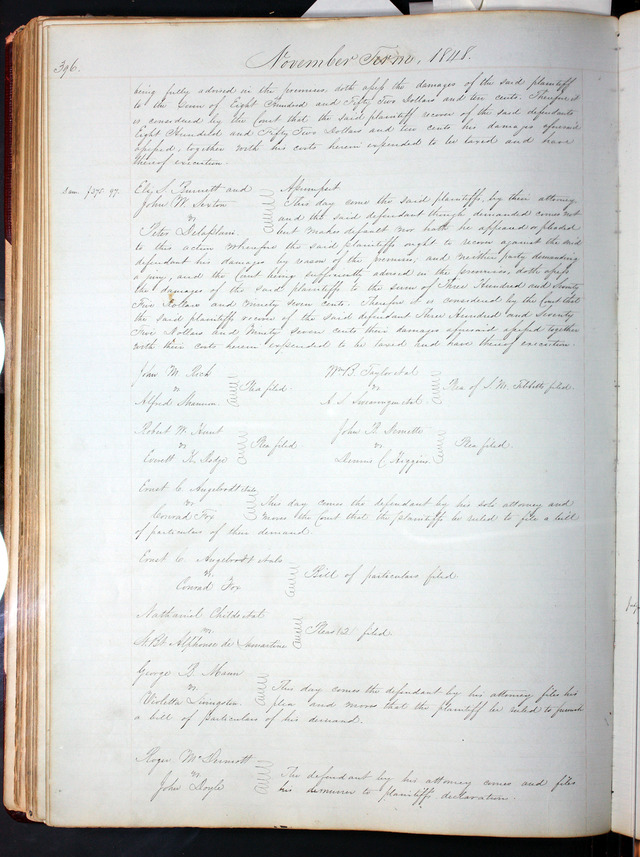 396.
November Term, 1848.
being fully advised in the premises doth assess the damages of the said plaintiff
to the Sum of Eight Hundred and Fifty Two Dollars and ten cents. Therefore it
is considered by the Court that the said plaintiff recover of the said defendants
Eight Hundred and Fifty Two Dollars and ten cents his damages aforesaid
assessed, together with his costs herein expended to be taxed and have
thereof execution.
Dam. $375 97. Eli S. Burnett and
John W. Sexton
vs
Peter Delaplain.
Assumpsit
This day come the said plaintiffs by their attorney
and the said defendant though demanded comes not
but makes default nor hath he appeared or pleaded
to this action wherefore the said plaintiffs ought to recover against the said
defendant his damages by reason of the premises, and neither party demanding
a jury, and the Court being sufficiently advised in the premises, doth assess
the damages of the said plaintiffs to the sum of Three Hundred and Seventy
Five Dollars and ninety seven cents. Therefore it is considered by the Court that
the said plaintiffs recover of the said defendant Three Hundred and Seventy
Five Dollars and Ninety seven cents their damages aforesaid assessed together
with their costs herein expended to be taxed and have thereof execution.
John M. Rick
vs
Alfred Shannon
Plea filed.
Wm B. Taylor et al
vs
A. S. et al
Plea of S. M. Tibbetts filed.
Robert W. Hunt
vs
Everett H. Hodge
Plea filed
John B.
vs
Dennis C. Higgins
Plea filed.
Ernst C. Angelrodt et als.
vs
Conrad Fox
This day comes the defendant by his sole attorney and
moves the Court that the plaintiffs be ruled to file a bill
of particulars of their demand.
Ernst C. Angelrodt et als
vs.
Conrad Fox
Bill of particulars filed
Nathaniel Childs et al
vs.
St. Bt. Alphonse de Lamartine
Pleas (2) filed.
George B. Mann
vs.
Violetta Livingston.
This day comes the defendant by his attorney files his
plea and moves that the plaintiff be ruled to furnish
a bill of particulars of his demand.
Roger McDermott
vs
John Doyle
The defendant by his attorney comes and files
his demurrer to plaintiffs declaration.